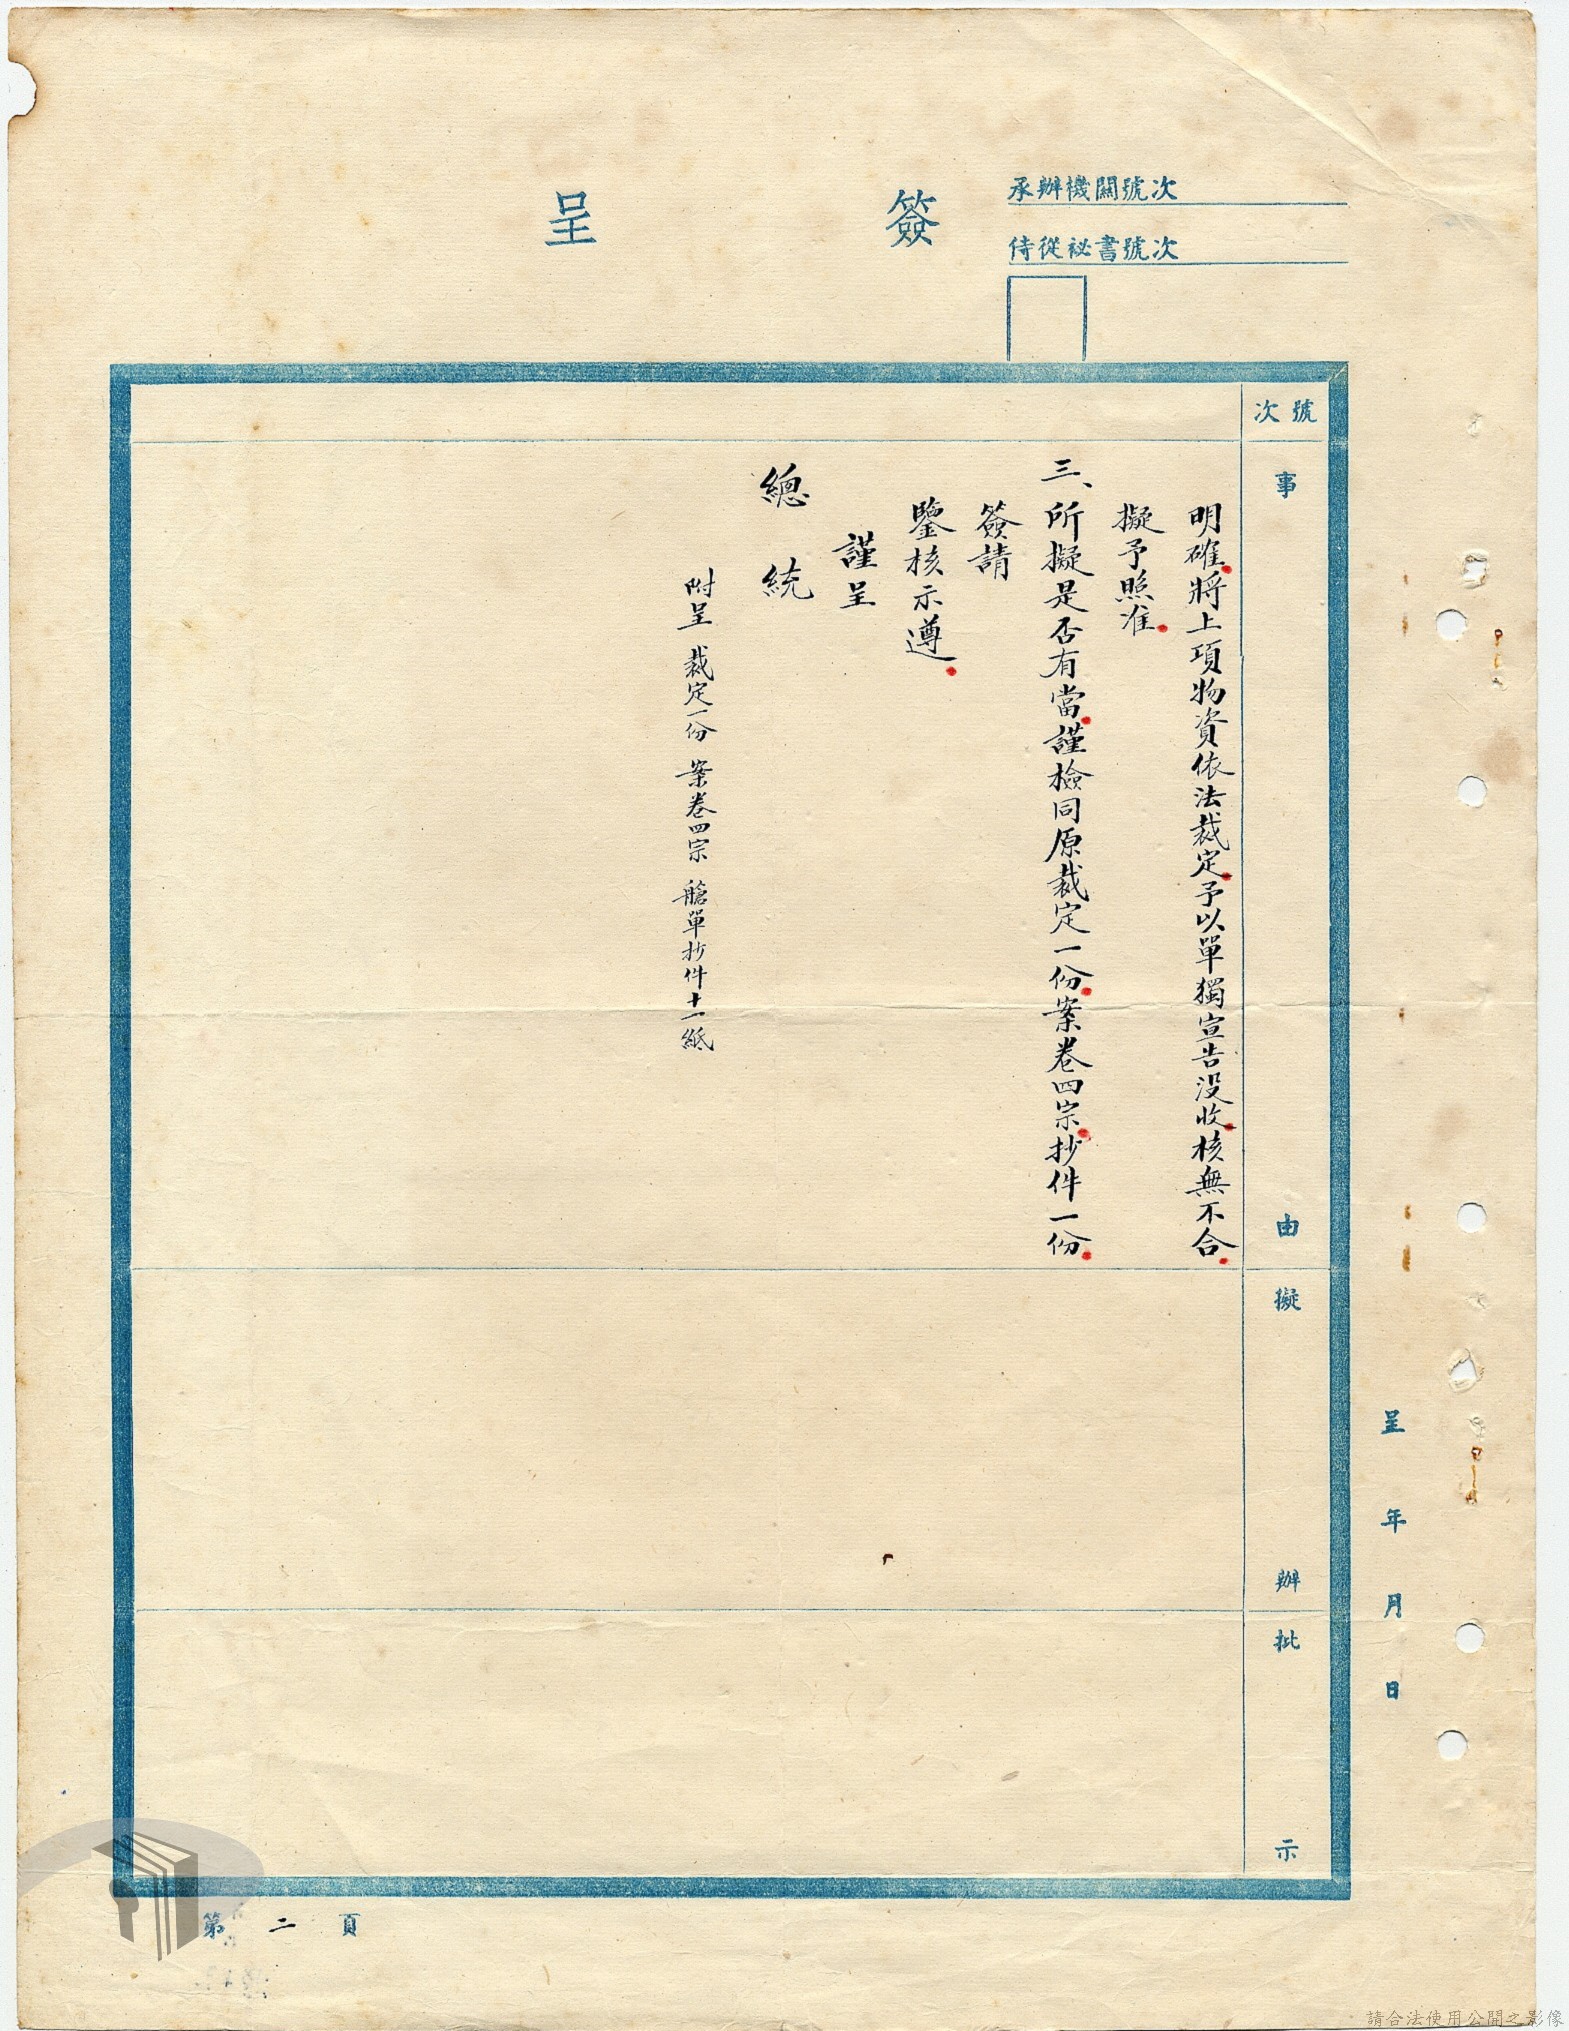 簽呈
承辦機關號次
侍從祕書號次
號次
事由
擬辦
批示
明確將上項物資依法裁定予以單獨宣告沒收核無不合
擬予照准
三、所擬是否有當謹檢同原裁定一份案卷四宗抄件一份
簽請
鑒核示遵
謹呈
總統
附呈 裁定一份 案卷四宗 艙單抄件十一紙
呈 年 月 日
第二頁
請合法使用公開之影像